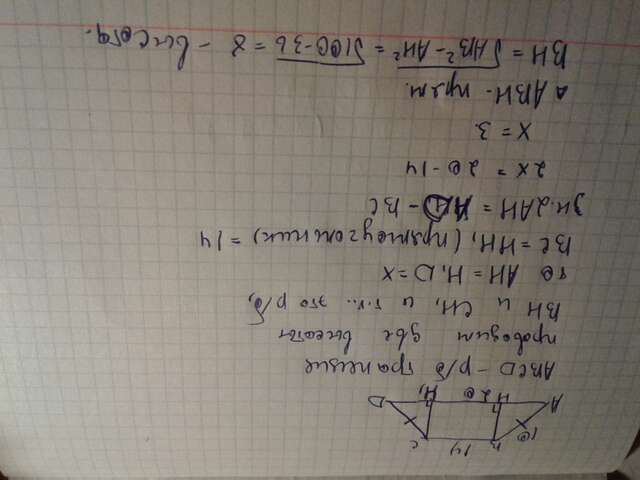 B 14 C
10
A H 20 H₁ D
ABCD - р/б трапеция
проводим две высоты
BH и CH₁ и т.к. это р/б,
то AH = H₁D = x
BC = HH₁ (прямоугольник) = 14
зн. 2AH = AD - BC
2x = 20 - 14
x = 3.
△ ABH - прям.
BH = √AB² - AH² = √100 - 36 = 8 - высота.